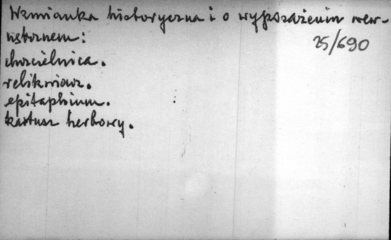 Wzmianka historyczna i o wyposażeniu wew-
nętrznem:
25/690
chrzcielnica.
relikwiarz.
epitaphium.
kartusz herbowy.